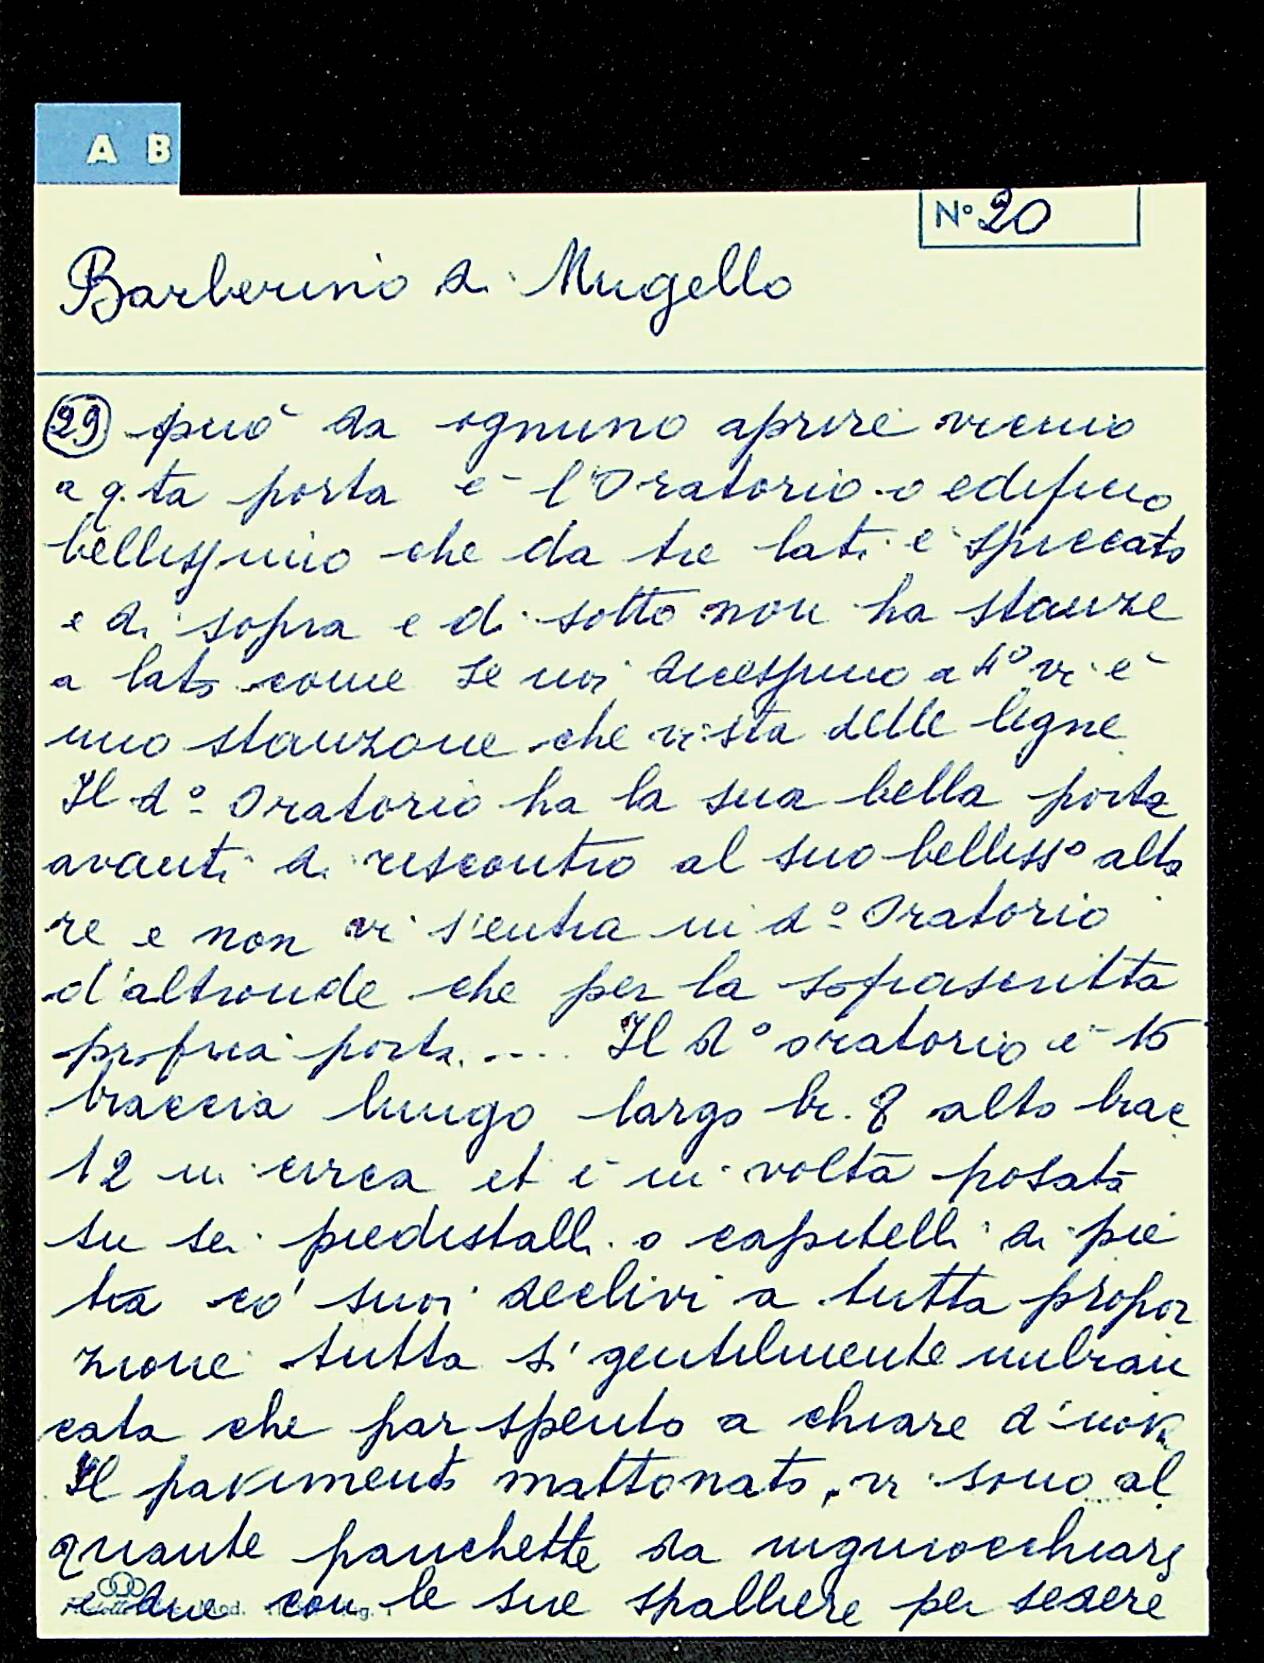 A B
N° 20
Barberino di Mugello
(29) può da ognuno aprire vicino
a q.ta porta è l'Oratorio o edifizio
bellissimo che da tre lati è spiccato
e di sopra e di sotto non ha stanze
a lato come se noi dicessimo a 4° vi è
uno stanzone che vi sta delle legne
Il d° Oratorio ha la sua bella porta
avanti di riscontro al suo belliss° alta
re e non vi s'entra in d° Oratorio
d'altronde che per la soprascritta
propria porta .... Il d° oratorio è 15
braccia lungo largo br. 8 alto brac
12 in circa et è in volta posata
su sei piedistalli o capitelli di pie
tra co' suoi declivi a tutta propor
zione tutta sì gentilmente imbian
cata che par spento a chiare d'
Il pavimento mattonato, vi sono al
quante panchette da inginocchiarsi
e due con le sue spalliere per sedere
Mod.